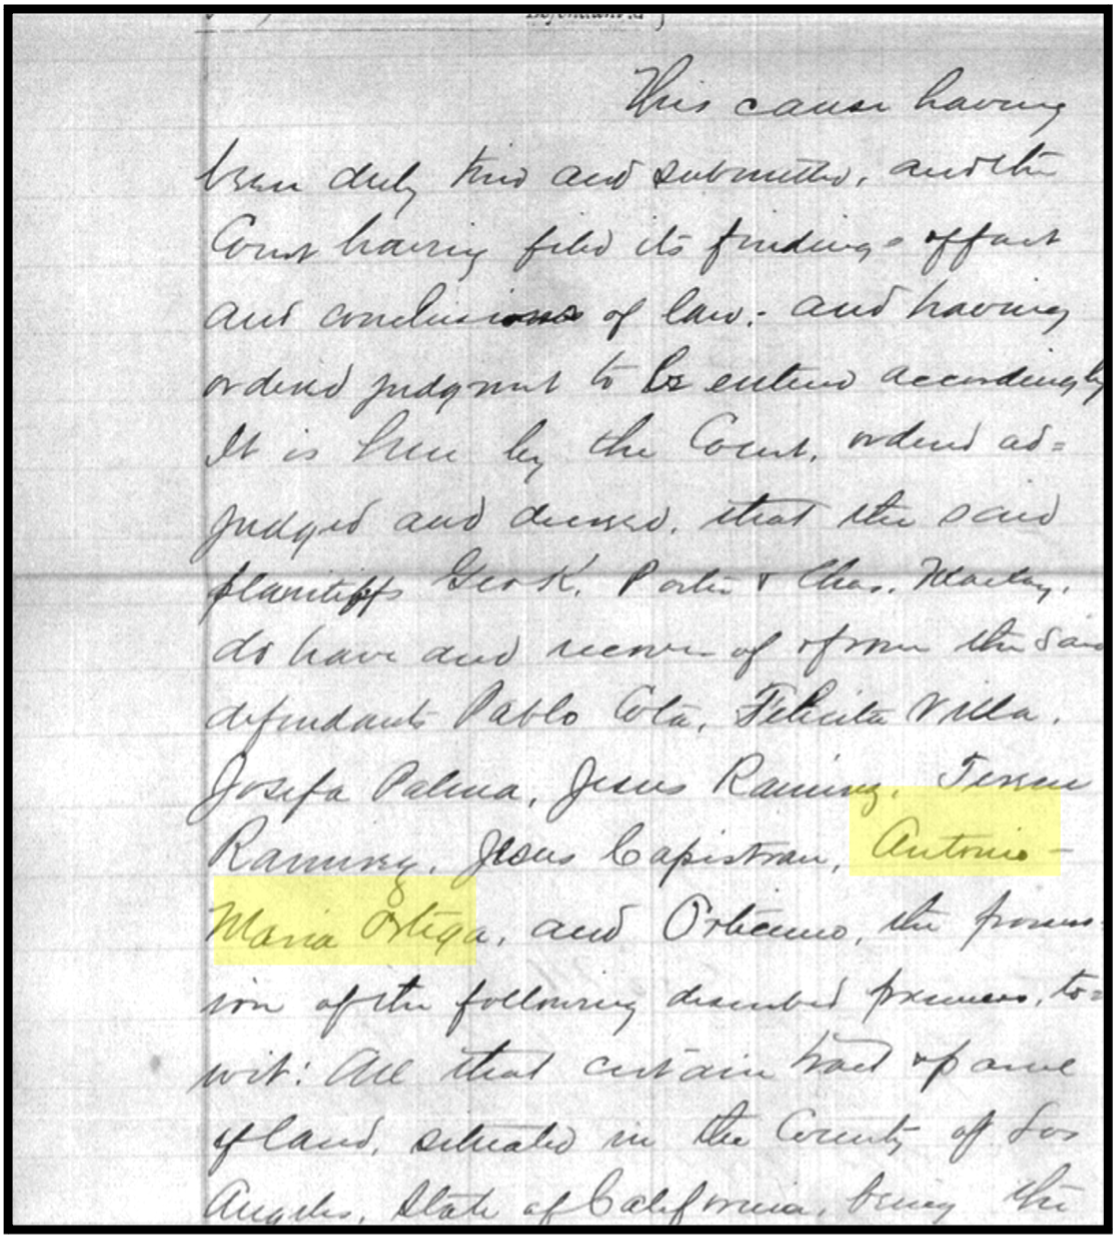 Defendants
This cause having
been duly tried and submitted, and the
Court having filed its findings of fact
and conclusions of law; and having
ordered judgment to be entered accordingly
It is here by the Court, ordered ad=
judged and decreed, that the said
plaintiffs Geo K. Porter & Chas. Maclay,
do have and recover of & from the said
defendants Pablo Cota, Felicita Villa,
Josefa Palma, Jesus Ramirez, Teresa
Ramirez, Jesus Capistran, Antonio
Maria Ortega, and Orticano, the posses-
sion of the following described premises, to=
wit: All that certain tract & parcel
of land, situated in the County of Los
Angeles, State of California, being the